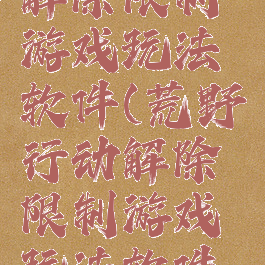 解除限制
游戏玩法
软件(荒野
行动解除
限制游戏
玩法软件